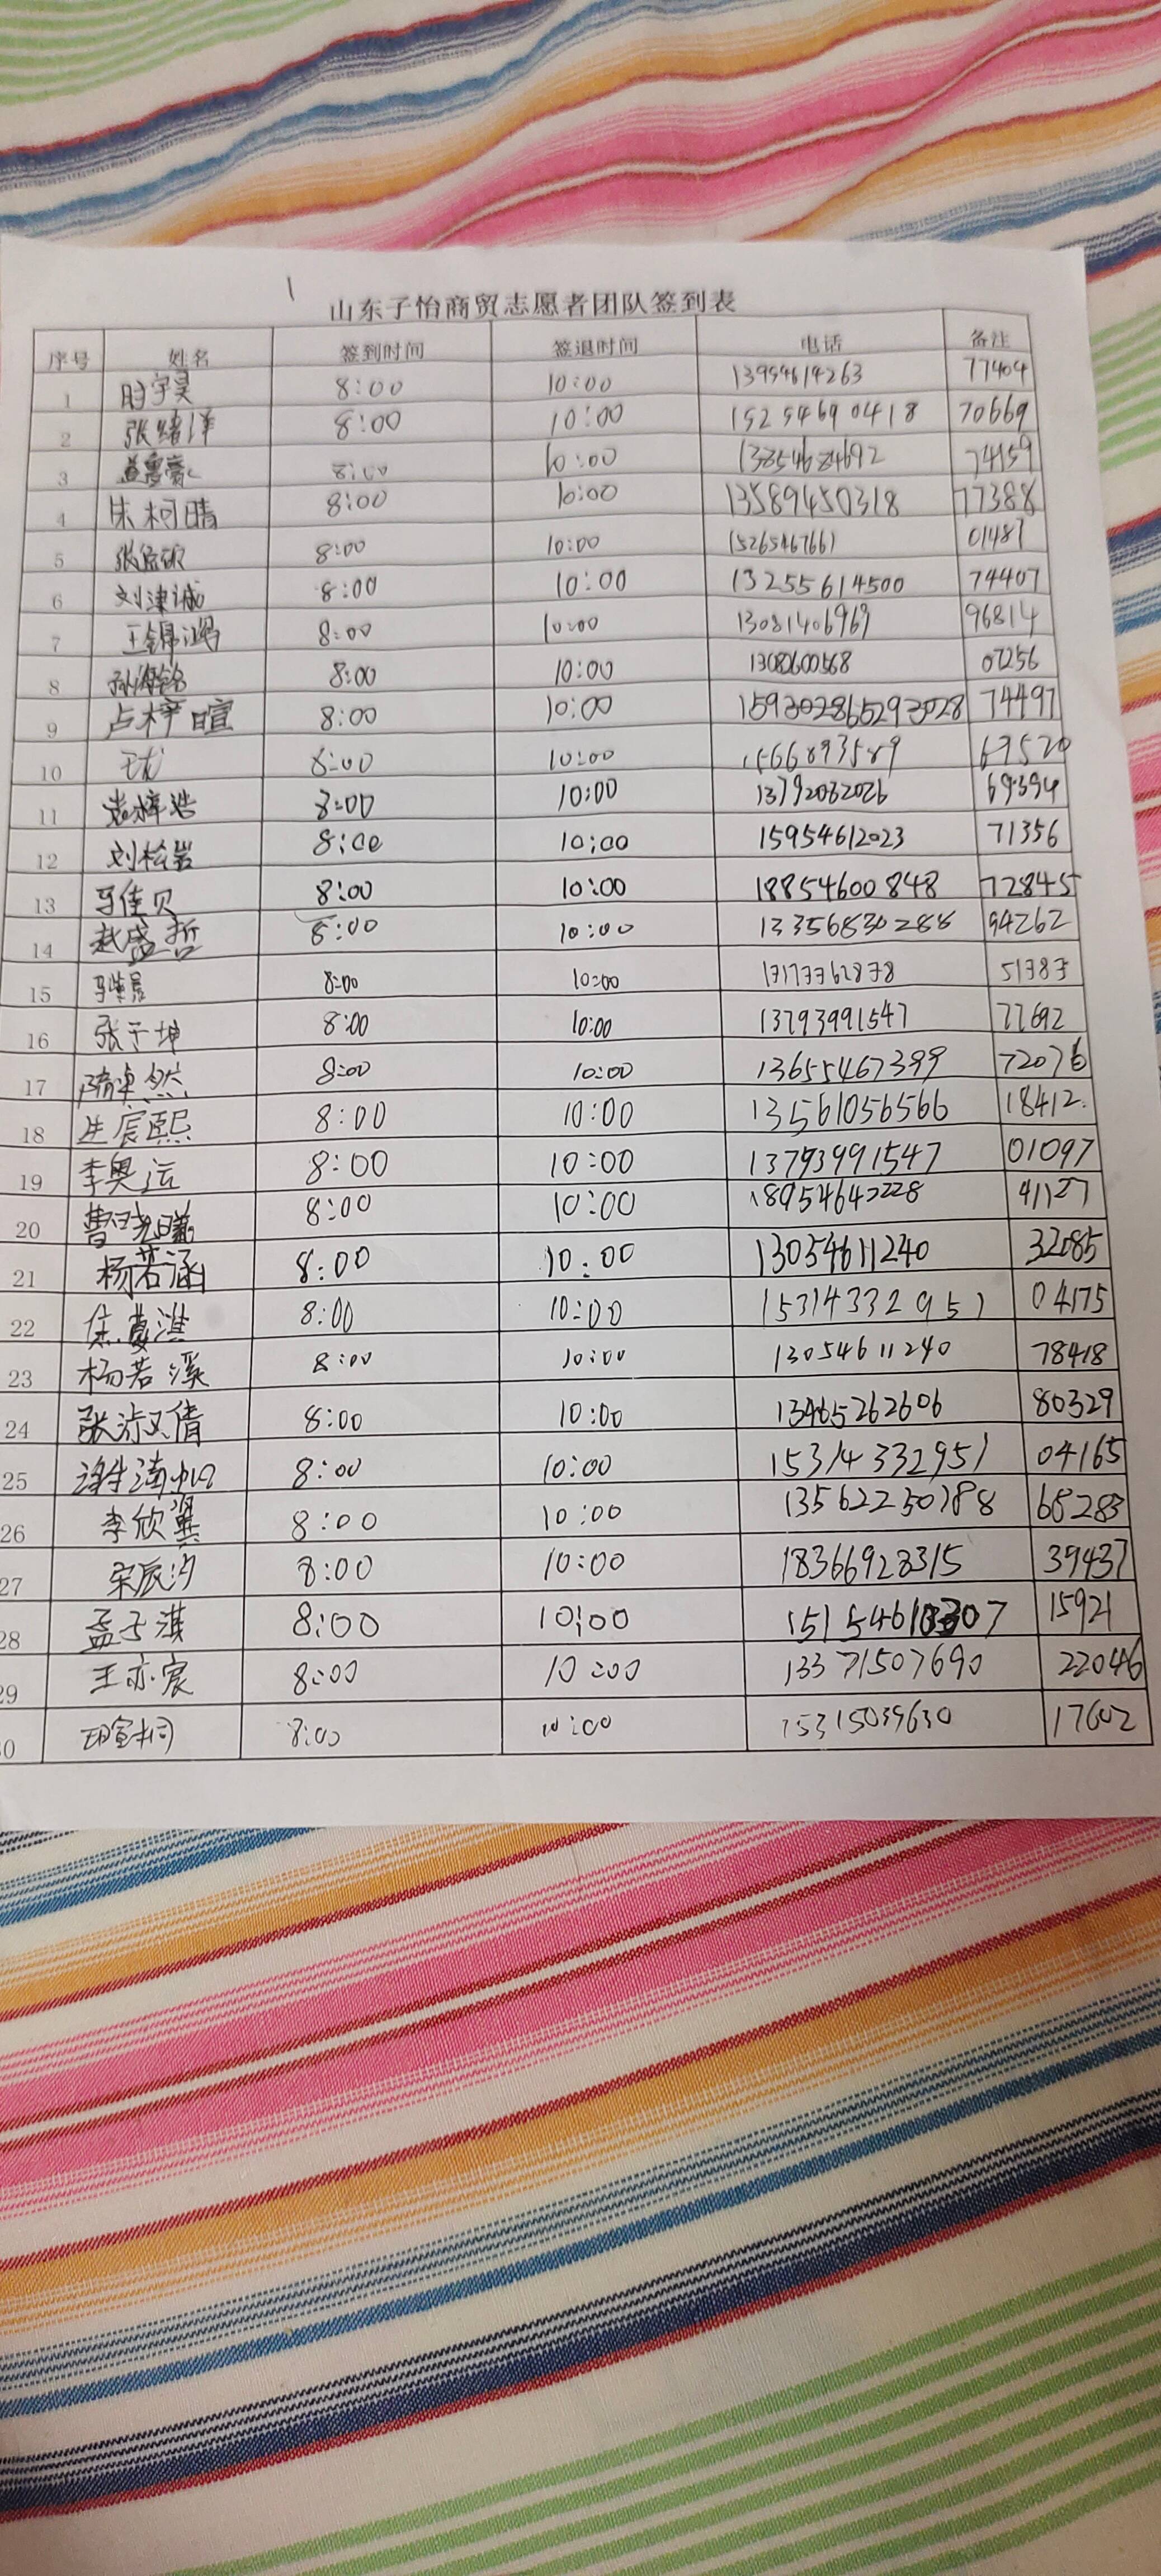 1
山东子怡商贸志愿者团队签到表
序号 姓名 签到时间 签退时间 电话 备注
1 时宇昊 8:00 10:00 13954614263 77404
2 张绪洋 8:00 10:00 15254690418 70669
3 8:00 10:00 13854684692 74159
4 朱柯晴 8:00 10:00 13589450318 77388
5 8:00 10:00 15265467661 01487
6 刘津诚 8:00 10:00 13255614500 74407
7 王锦鸿 8:00 10:00 13081406969 96814
8 8:00 10:00 13082600568 07256
9 占梓暄 8:00 10:00 159302865293028 74497
10 8:00 10:00 1566893589 69520
11 袁梓浩 8:00 10:00 13792032026 69394
12 刘松岩 8:00 10:00 15954612023 71356
13 马佳贝 8:00 10:00 18854600848 72845
14 赵盛哲 8:00 10:00 13356830288 94262
15 8:00 10:00 17177362878 51383
16 张于坤 8:00 10:00 13793991547 77692
17 隋卓然 8:00 10:00 13655467399 72076
18 生宸熙 8:00 10:00 13561056566 18412.
19 李奥运 8:00 10:00 13793991547 01097
20 8:00 10:00 18954647228 41127
21 杨若涵 8:00 10:00 13054611240 32085
22 8:00 10:00 15314332951 04175
23 杨若溪 8:00 10:00 13054611240 78418
24 张淑倩 8:00 10:00 13465262606 80329
25 8:00 10:00 15314332951 04165
26 李欣翼 8:00 10:00 13562250788 68283
27 宋辰汐 8:00 10:00 18366928315 39437
28 孟子淇 8:00 10:00 15921
29 王亦宸 8:00 10:00 13371507690 22046
30 8:00 10:00 15315039630 17602